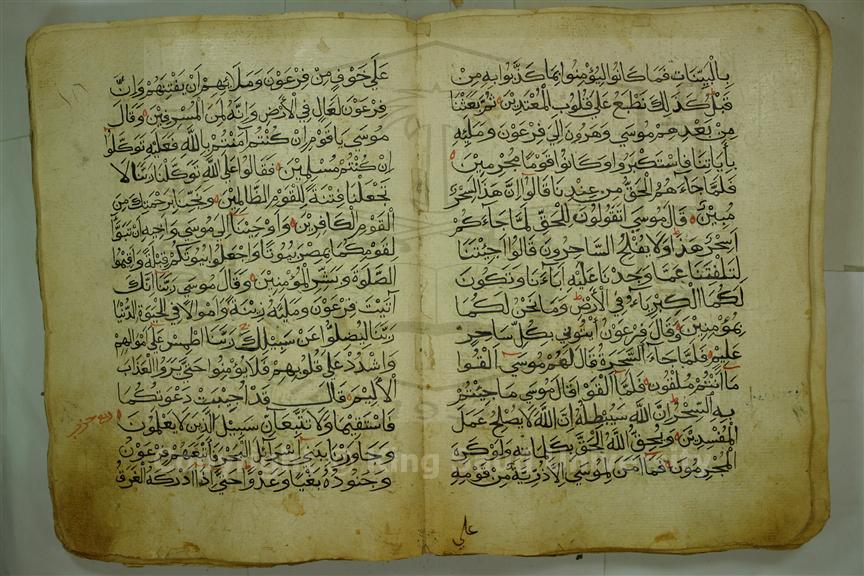 بِالْبَيِّنَاتِ فَمَا كَانُوا لِيُؤْمِنُوا بِمَا كَذَّبُوا بِهِ مِنْ
قَبْلُ كَذَلِكَ نَطْبَعُ عَلَى قُلُوبِ الْمُعْتَدِينَ ثُمَّ بَعَثْنَا
مِنْ بَعْدِهِمْ مُوسَى وَهَرُونَ إِلَى فِرْعَوْنَ وَمَلَئِهِ
بِأَيَاتِنَا فَاسْتَكْبَرُوا وَكَانُوا قَوْمًا مُجْرِمِينَ
فَلَمَّا جَاءَهُمُ الْحَقُّ مِنْ عِنْدِنَا قَالُوا إِنَّ هَذَا لَسِحْرٌ
مُبِينٌ قَالَ مُوسَى أَتَقُولُونَ لِلْحَقِّ لَمَّا جَاءَكُمْ
أَسِحْرٌ هَذَا وَلَا يُفْلِحُ السَّاحِرُونَ قَالُوا أَجِئْتَنَا
لِتَلْفِتَنَا عَمَّا وَجَدْنَا عَلَيْهِ أَبَاءَنَا وَتَكُونَ
لَكُمَا الْكِبْرِيَاءُ فِي الْأَرْضِ وَمَا نَحْنُ لَكُمَا
بِمُؤْمِنِينَ وَقَالَ فِرْعَوْنُ ائْتُونِي بِكُلِّ سَاحِرٍ
عَلِيمٍ فَلَمَّا جَاءَ السَّحَرَةُ قَالَ لَهُمْ مُوسَى أَلْقُوا
مَا أَنْتُمْ مُلْقُونَ فَلَمَّا أَلْقَوْا قَالَ مُوسَى مَا جِئْتُمْ
بِهِ السِّحْرُ إِنَّ اللَّهَ سَيُبْطِلُهُ إِنَّ اللَّهَ لَا يُصْلِحُ عَمَلَ
الْمُفْسِدِينَ وَيُحِقُّ اللَّهُ الْحَقَّ بِكَلِمَاتِهِ وَلَوْ كَرِهَ
الْمُجْرِمُونَ فَمَا أَمَنَ لِمُوسَى إِلَّا ذُرِّيَّةٌ مِنْ قَوْمِهِ
علي
عَلَى خَوْفٍ مِنْ فِرْعَوْنَ وَمَلَائِهِمْ أَنْ يَفْتِنَهُمْ وَإِنَّ
فِرْعَوْنَ لَعَالٍ فِي الْأَرْضِ وَإِنَّهُ لَمِنَ الْمُسْرِفِينَ وَقَالَ
مُوسَى يَا قَوْمِ إِنْ كُنْتُمْ آمَنْتُمْ بِاللَّهِ فَعَلَيْهِ تَوَكَّلُوا
إِنْ كُنْتُمْ مُسْلِمِينَ فَقَالُوا عَلَى اللَّهِ تَوَكَّلْنَا رَبَّنَا لَا
تَجْعَلْنَا فِتْنَةً لِلْقَوْمِ الظَّالِمِينَ وَنَجِّنَا بِرَحْمَتِكَ مِنَ
الْقَوْمِ الْكَافِرِينَ وَأَوْحَيْنَا إِلَى مُوسَى وَأَخِيهِ أَنْ تَبَوَّأَ
لِقَوْمِكُمَا بِمِصْرَ بُيُوتًا وَاجْعَلُوا بُيُوتَكُمْ قِبْلَةً وَأَقِيمُوا
الصَّلَوةَ وَبَشِّرِ الْمُؤْمِنِينَ وَقَالَ مُوسَى رَبَّنَا إِنَّكَ
آتَيْتَ فِرْعَوْنَ وَمَلَئَهُ زِينَةً وَأَمْوَالًا فِي الْحَيَوةِ الدُّنْيَا
رَبَّنَا لِيُضِلُّوا عَنْ سَبِيلِكَ رَبَّنَا اطْمِسْ عَلَى أَمْوَالِهِمْ
وَاشْدُدْ عَلَى قُلُوبِهِمْ فَلَا يُؤْمِنُوا حَتَّى يَرَوُا الْعَذَابَ
الْأَلِيمَ قَالَ قَدْ أُجِيبَتْ دَعْوَتُكُمَا
فَاسْتَقِيمَا وَلَا تَتَّبِعَانِّ سَبِيلَ الَّذِينَ لَا يَعْلَمُونَ
وَجَاوَزْنَا بِبَنِي إِسْرَائِلَ الْبَحْرَ فَأَتْبَعَهُمْ فِرْعَوْنُ
وَجُنُودُهُ بَغْيًا وَعَدْوًا حَتَّى إِذَا أَدْرَكَهُ الْغَرَقُ